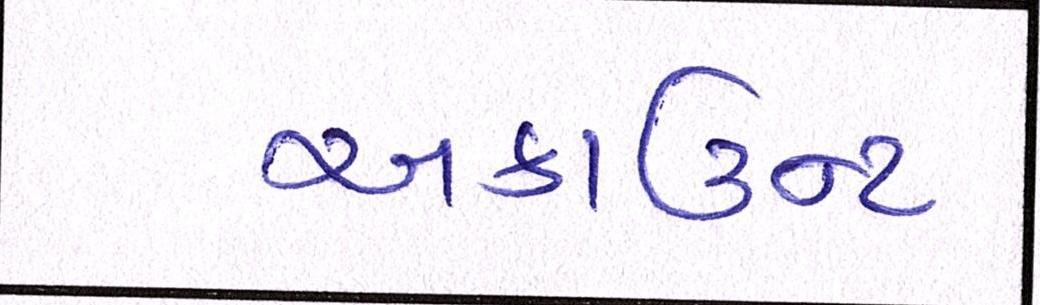 અકાઉન્ટ